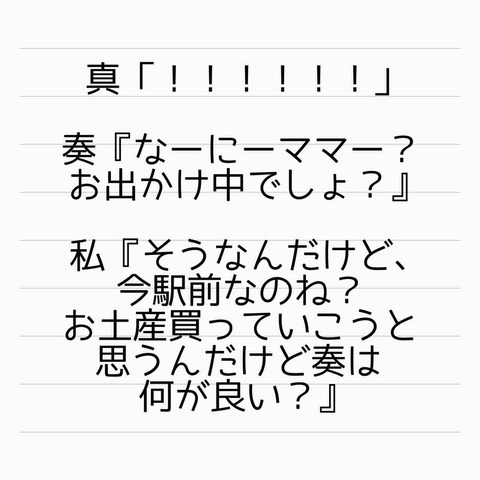 真「！！！！！！」
奏『なーにーママー？
お出かけ中でしょ？』
私『そうなんだけど、
今駅前なのね？
お土産買っていこうと
思うんだけど奏は
何が良い？』